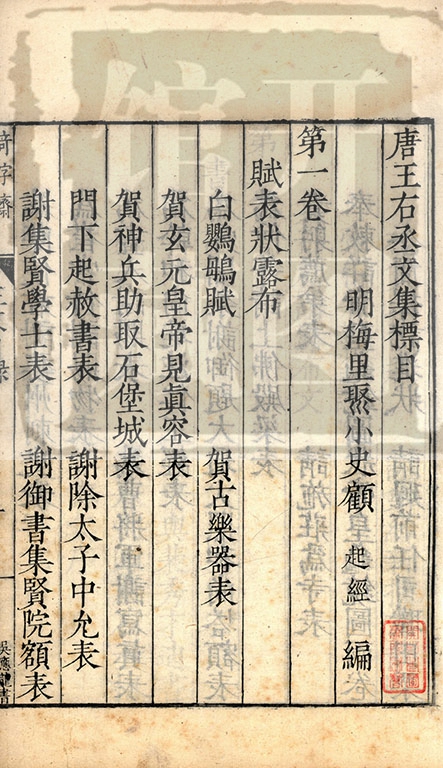 唐王右丞文集標目
明梅里□小史顧 起經 編
第一卷
賦表狀露布
白鸚鵡賦 賀古樂器表
賀玄元皇帝見眞容表
賀神兵助取石堡城表
門下起赦書表 謝除太子中允表
謝集賢學士表 謝御書集賢院額表
奇字齋
吳應龍書